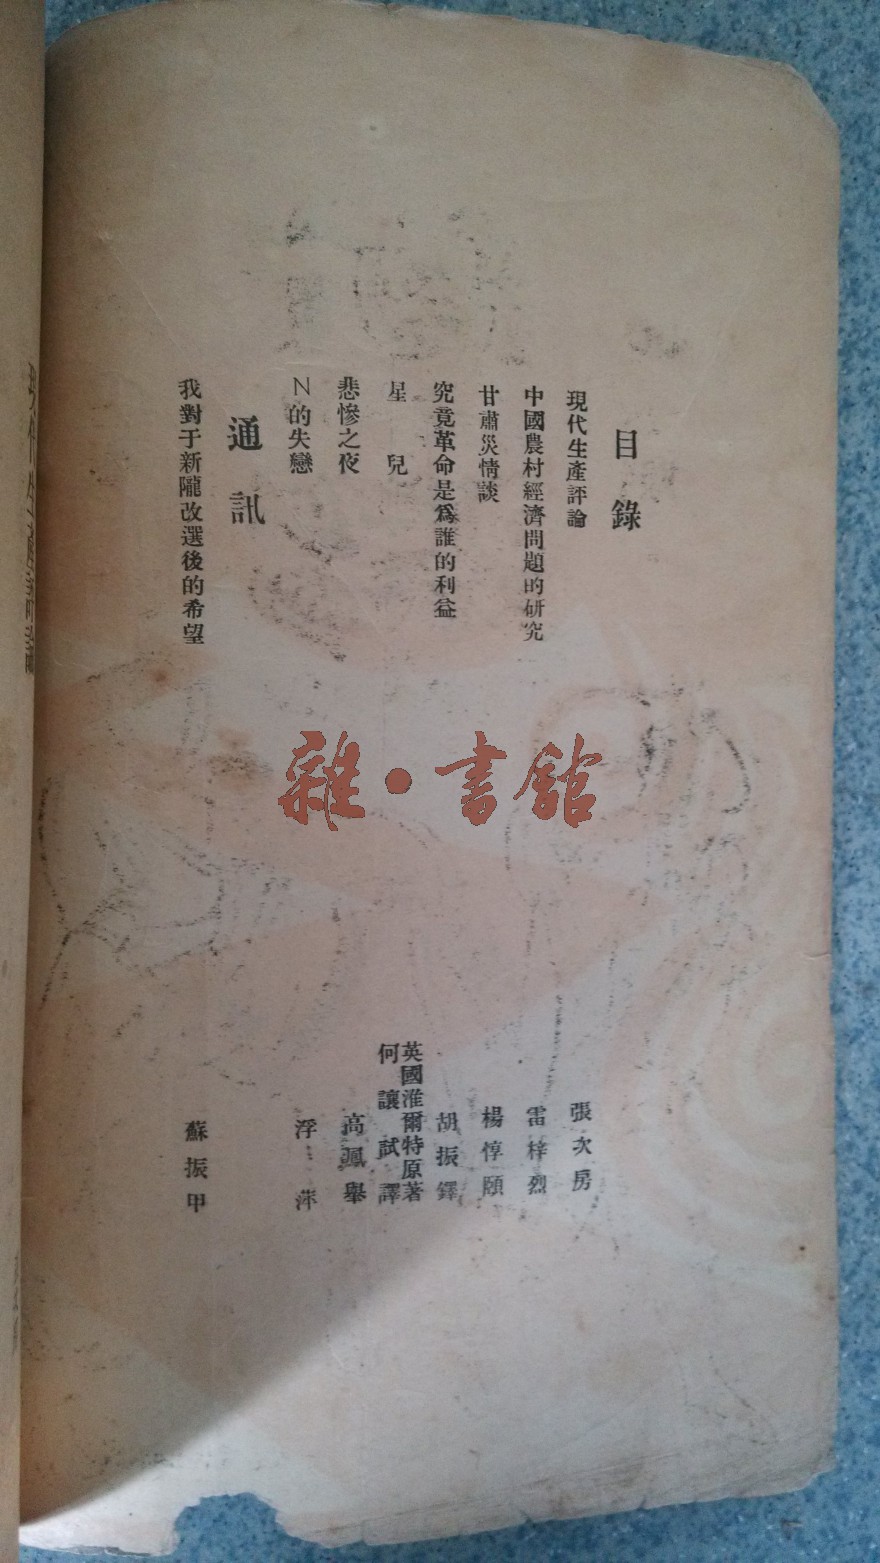 目錄
現代生產評論
張次房
中國農村經濟問題的研究
雷梓烈
甘肅災情談
楊惇頤
究竟革命是爲誰的利益
胡振鐸
星兒
英國淮爾特原著
何讓試譯
悲慘之夜
高颿舉
N的失戀
浮萍
通訊
我對于新隴改選後的希望
蘇振甲
雜·書館